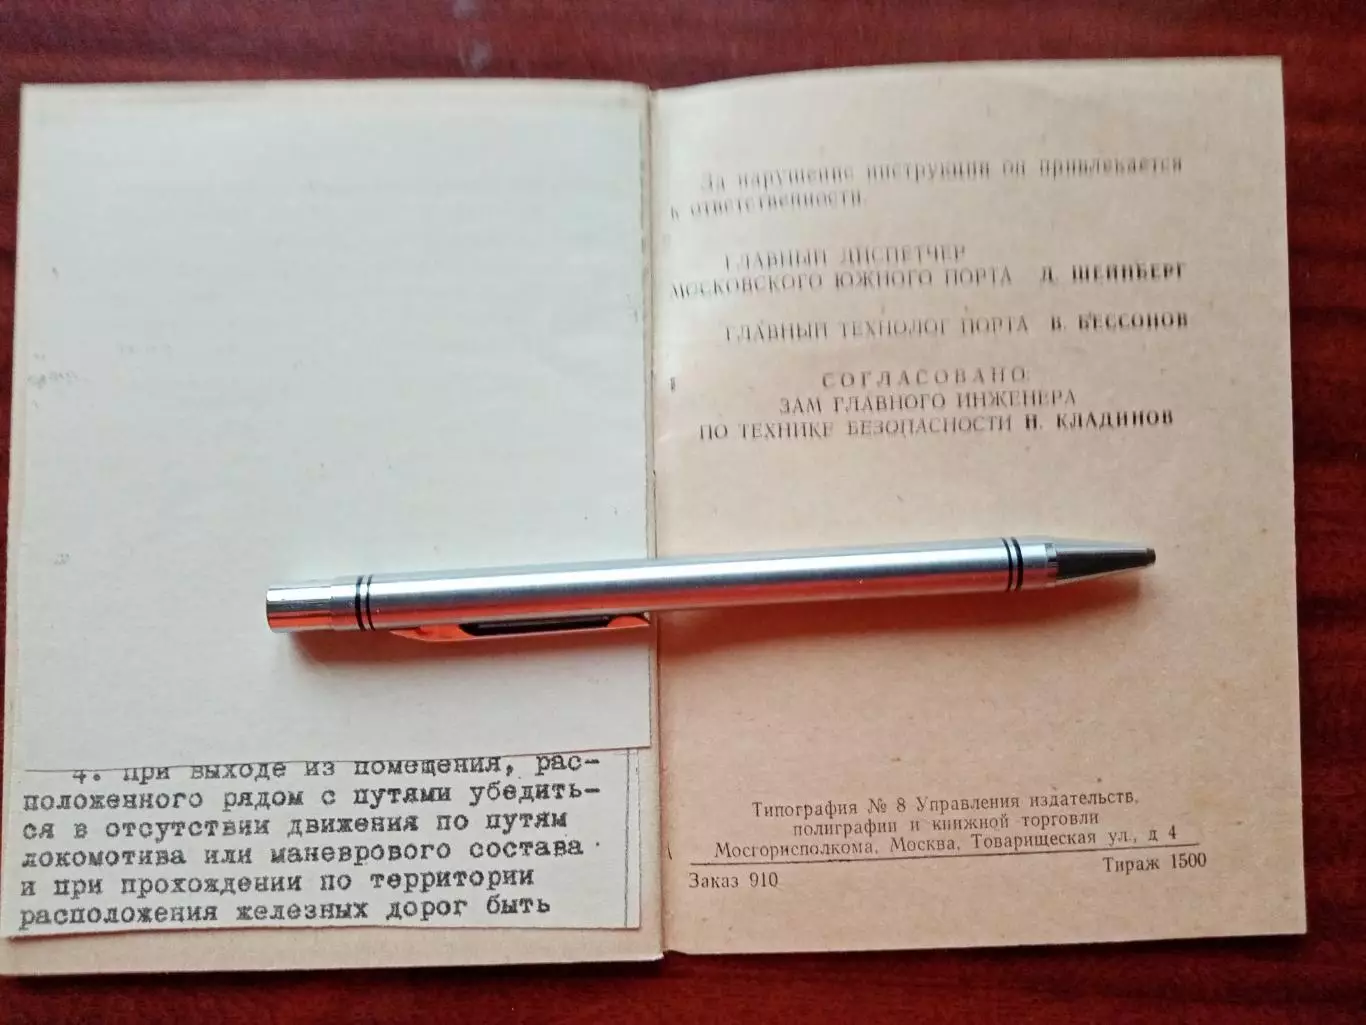 4. При выходе из помещения, рас-
положенного рядом с путями убедить-
ся в отсутствии движения по путям
локомотива или маневрового состава
и при прохождении по территории
расположения железных дорог быть
За нарушение инструкции он привлекается
к ответственности.
ГЛАВНЫЙ ДИСПЕТЧЕР
МОСКОВСКОГО ЮЖНОГО ПОРТА Д. ШЕЙНБЕРГ
ГЛАВНЫЙ ТЕХНОЛОГ ПОРТА В. БЕССОНОВ
СОГЛАСОВАНО:
ЗАМ ГЛАВНОГО ИНЖЕНЕРА
ПО ТЕХНИКЕ БЕЗОПАСНОСТИ Н. КЛАДИНОВ
Типография № 8 Управления издательств,
полиграфии и книжной торговли
Мосгорисполкома, Москва, Товарищеская ул., д 4
Заказ 910 Тираж 1500